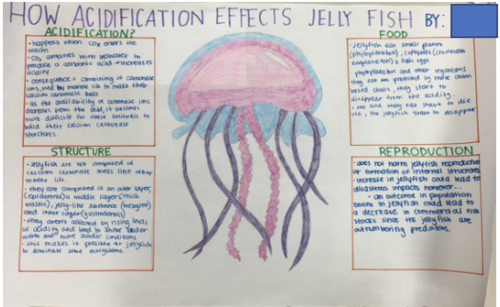 HOW ACIDIFICATION EFFECTS JELLY FISH BY:
ACIDIFICATION?
• happens when CO₂ enters the
ocean
• CO₂ combines with seawater to
produce a carbonic acid → increases
acidity
• consequence = combining of carbonate
ions, used by marine life to make their
calcium carbonate shells
• as the availability of carbonate ions
decreases from the acid, it becomes
more difficult for these animals to
build their calcium carbonate
structures.
FOOD
Jellyfish eat small plants
(phytoplankton), copepods (
zooplankton) & fish eggs
phytoplankton and other organisms
they eat are protected by
shells, may start to
disappear from the acidity.
food may start to die
the jellyfish start to
STRUCTURE
• Jellyfish are not composed of
calcium carbonate shells like other
marine life.
• they are composed of an outer layer,
(epidermis) a middle layer (thick
elastic), jelly-like substance (mesoglea)
and inner layer (gastrodermis)
• they aren't affected by rising levels
of acidity and tend to
more acidic conditions
• this makes it possible for jellyfish
to dominate some ecosystems.
REPRODUCTION
• does not harm jellyfish reproduction
or formation of internal structures
• increase in jellyfish could lead to
disastrous impacts however...
- an outcome in population
boom in jellyfish could lead to
a decrease in commercial fish
stocks since the jellyfish are
outnumbering predators.